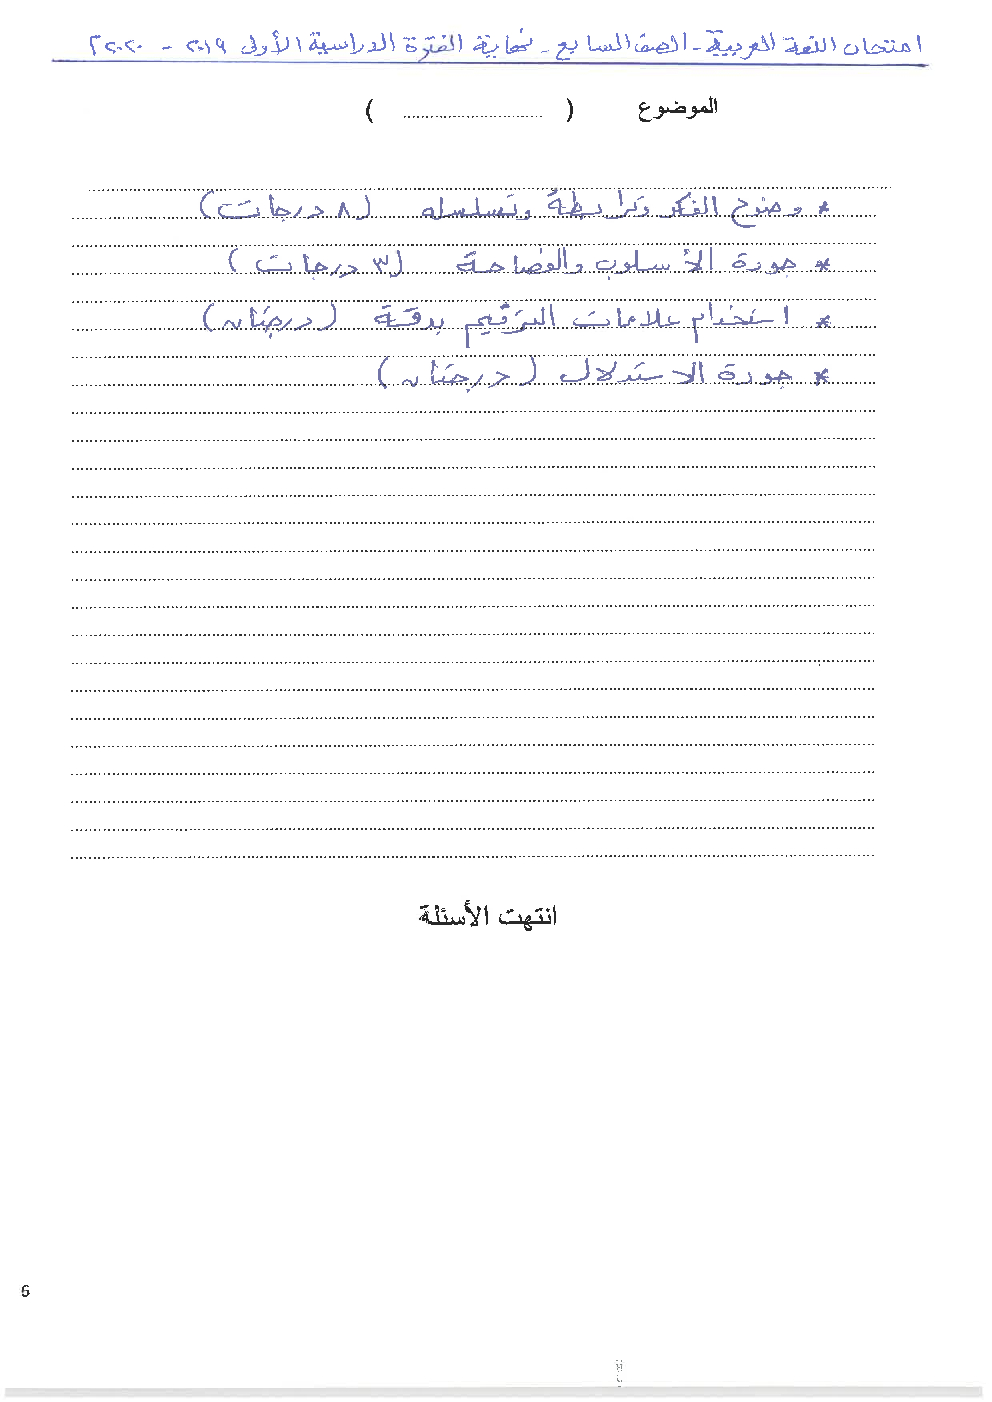 امتحان اللغة العربية - الصف السابع - نهاية الفترة الدراسية الأولى ٢٠١٩ - ٢٠٢٠م
الموضوع ( ............................ )
* وضوح الفكر وترابطه وتسلسله (٨ درجات)
* جودة الأسلوب والفصاحة (٣ درجات)
* استخدام علامات الترقيم بدقة (درجتان)
* جودة الاستدلال (درجتان)
انتهت الأسئلة
6